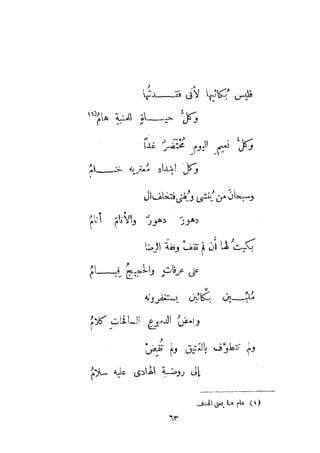 فليس بُكائيها لأنى فقـــدتُها
وكلُّ حيـــاةٍ للمنية هامُ(١)
وكلُّ نعيمِ اليوم مُحتضَرٌ غدًا
وكلُّ ابتداءٍ مُعتريه ختـــامُ
وسبحانَ من يُنشى ويُفنى فتخلف ال
دهورَ دهورٌ والأنامَ أنامُ
بكيتُ لها أن لم تقفْ وقفةَ الرضا
على عرفاتٍ والحجيجُ قيـــامُ
مُلبّـــين بكّائين يستغفرونه
وبعضُ الدموع السافحات كلامُ
ولم تتطوَّف بالعتيق ولم تُفِضْ
إلى روضة الهادى عليه سلامُ
(١) هام هنا بمعنى الهدف
٦٣